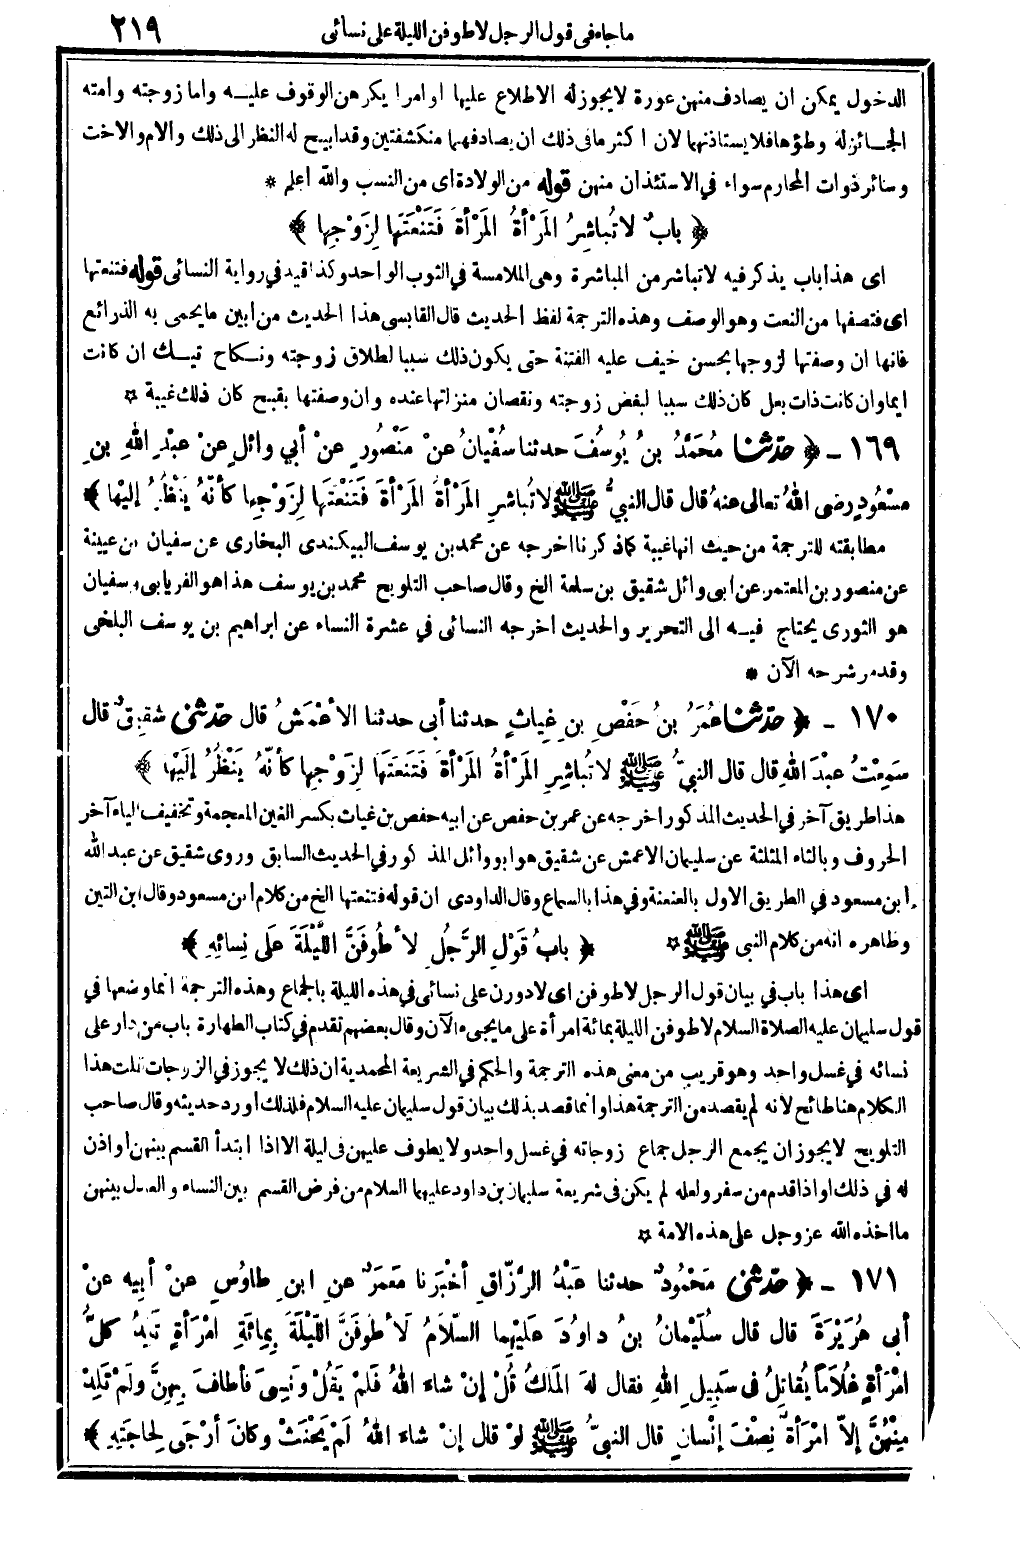 ما جاء فى قول الرجل لاطوفن الليلة على نسائى ٢١٩
الدخول يمكن ان يصادف منهن عورة لا يجوز له الاطلاع عليها او امرا يكرهن الوقوف عليه واما زوجته وامته
الجائزله وطؤها فلا يستاذنهما لان اكثر ما فى ذلك ان يصادفهما منكشفتين وقد ابيح له النظر الى ذلك والام والاخت
وسائر ذوات المحارم سواء في الاستئذان منهن قوله من الولادة اى من النسب والله اعلم *
﴿ بابٌ لا تُباشِرُ المَرْأةُ المَرْأةَ فَتَنْعَتَها لِزَوْجِها ﴾
اى هذا باب يذكر فيه لا تباشر من المباشرة وهى الملامسة في الثوب الواحد وكذا قيد في رواية النسائى قوله فتنعتها
اى فتصفها من النعت وهو الوصف وهذه الترجمة لفظ الحديث قال القابسى هذا الحديث من ابين ما يحمى به الذرائع
فانها ان وصفتها لزوجها بحسن خيف عليه الفتنة حتى يكون ذلك سببا لطلاق زوجته ونكاح تيك ان كانت
ايما وان كانت ذات بعل كان ذلك سببا لبغض زوجته ونقصان منزلتها عنده وان وصفتها بقبح كان ذلك غيبة ✡
١٦٩ - ﴿ حدّثنا مُحَمَّدُ بنُ يُوسُفَ حدثنا سُفْيانُ عنْ مَنْصُورٍ عنْ أبي وائلٍ عنْ عبْدِ اللهِ بنِ
مسْعُودٍ رضى اللهُ تعالى عنهُ قال قال النبيُّ ﷺ لا تُباشرِ المَرْأةُ المَرْأةَ فَتَنْعَتَها لِزَوْجِها كأنّهُ يَنْظُرُ إليْها ﴾
مطابقته للترجمة من حيث انها غيبة كما ذكرنا اخرجه عن محمد بن يوسف البيكندى البخارى عن سفيان بن عيينة
عن منصور بن المعتمر عن ابى وائل شقيق بن سلمة الخ وقال صاحب التلويح محمد بن يوسف هذا هو الفريابى وسفيان
هو الثورى يحتاج فيه الى التحرير والحديث اخرجه النسائى في عشرة النساء عن ابراهيم بن يوسف البلخى
وقد مر شرحه الآن *
١٧٠ - ﴿ حدّثنا عُمَرُ بنُ حَفْصِ بنِ غِياثٍ حدثنا أبى حدثنا الأعْمَشُ قال حدّثنى شقيقٌ قال
سَمِعْتُ عبْدَ اللهِ قال قال النبيُّ ﷺ لا تُباشِرِ المَرْأةُ المَرْأةَ فَتَنْعَتَها لِزَوْجِها كأنّهُ يَنْظُرُ إلَيْها ﴾
هذا طريق آخر في الحديث المذكور اخرجه عن عمر بن حفص عن ابيه حفص بن غياث بكسر الغين المعجمة وتخفيف الياء آخر
الحروف وبالثاء المثلثة عن سليمان الاعمش عن شقيق هو ابو وائل المذكور في الحديث السابق وروى شقيق عن عبد الله
ابن مسعود في الطريق الاول بالعنعنة وفي هذا بالسماع وقال الداودى ان قوله فتنعتها الخ من كلام ابن مسعود وقال ابن التين
وظاهره انه من كلام النبى ﷺ ✡ ﴿ بابُ قَوْلِ الرَّجُلِ لأطُوفَنَّ اللَّيْلَةَ عَلَى نِسائِهِ ﴾
اى هذا باب في بيان قول الرجل لاطوفن اى لادورن على نسائى في هذه الليلة بالجماع وهذه الترجمة انما وضعها في
قول سليمان عليه الصلاة السلام لاطوفن الليلة بمائة امرأة على ما يجىء الآن وقال بعضهم تقدم في كتاب الطهارة باب من دار على
نسائه في غسل واحد وهو قريب من معنى هذه الترجمة والحكم في الشريعة المحمدية ان ذلك لا يجوز في الزوجات قلت هذا
الكلام هنا طائح لانه لم يقصد من الترجمة هذا وانما قصد بذلك بيان قول سليمان عليه السلام فلذلك اورد حديثه وقال صاحب
التلويح لا يجوز ان يجمع الرجل جماع زوجاته في غسل واحد ولا يطوف عليهن فى ليلة الا اذا ابتدأ القسم بينهن او اذن
له في ذلك او اذا قدم من سفر ولعله لم يكن فى شريعة سليمان بن داود عليهما السلام من فرض القسم بين النساء والعدل بينهن
ما اخذه الله عز وجل على هذه الامة ✡
١٧١ - ﴿ حدّثنى مَحْمُودٌ حدثنا عَبْدُ الرَّزّاقِ أخْبَرَنا مَعمَرٌ عنِ ابنِ طاوُسٍ عنْ أبِيهِ عنْ
أبى هُرَيْرَةَ قال قال سُلَيْمانُ بنُ داوُدَ عَلَيْهِما السَّلامُ لَأطُوفَنَّ اللّيْلَةَ بِمِائَةِ امْرَأةٍ تَلِدُ كلُّ
امْرَأةٍ غُلاماً يُقاتِلُ فى سَبِيلِ اللهِ فقال لهَ المَلكُ قُلْ إنْ شاءَ اللهُ فَلَمْ يَقُلْ ونَسِىَ فأطافَ بِهِنَّ ولَمْ تَلِدْ
مِنْهُنَّ إلاّ امْرَأةٌ نِصْفَ إنْسانٍ قال النبيُّ ﷺ لوْ قال إنْ شاءَ اللهُ لَمْ يَحْنَثْ وكانَ أرْجَى لِحاجَتِهِ ﴾